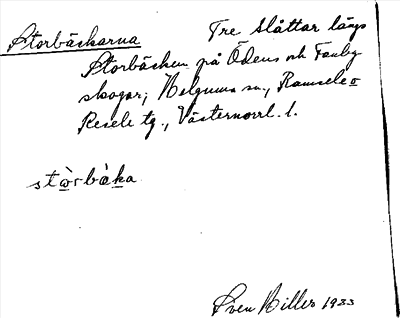 Storbäckarna Tre slåttar längs
Storbäcken på Ödens och Fanby
skogar; Helgums sn., Ramsele o
Resele tg., Västernorrl. l.
stòrbàka
Sven Hillers 1933